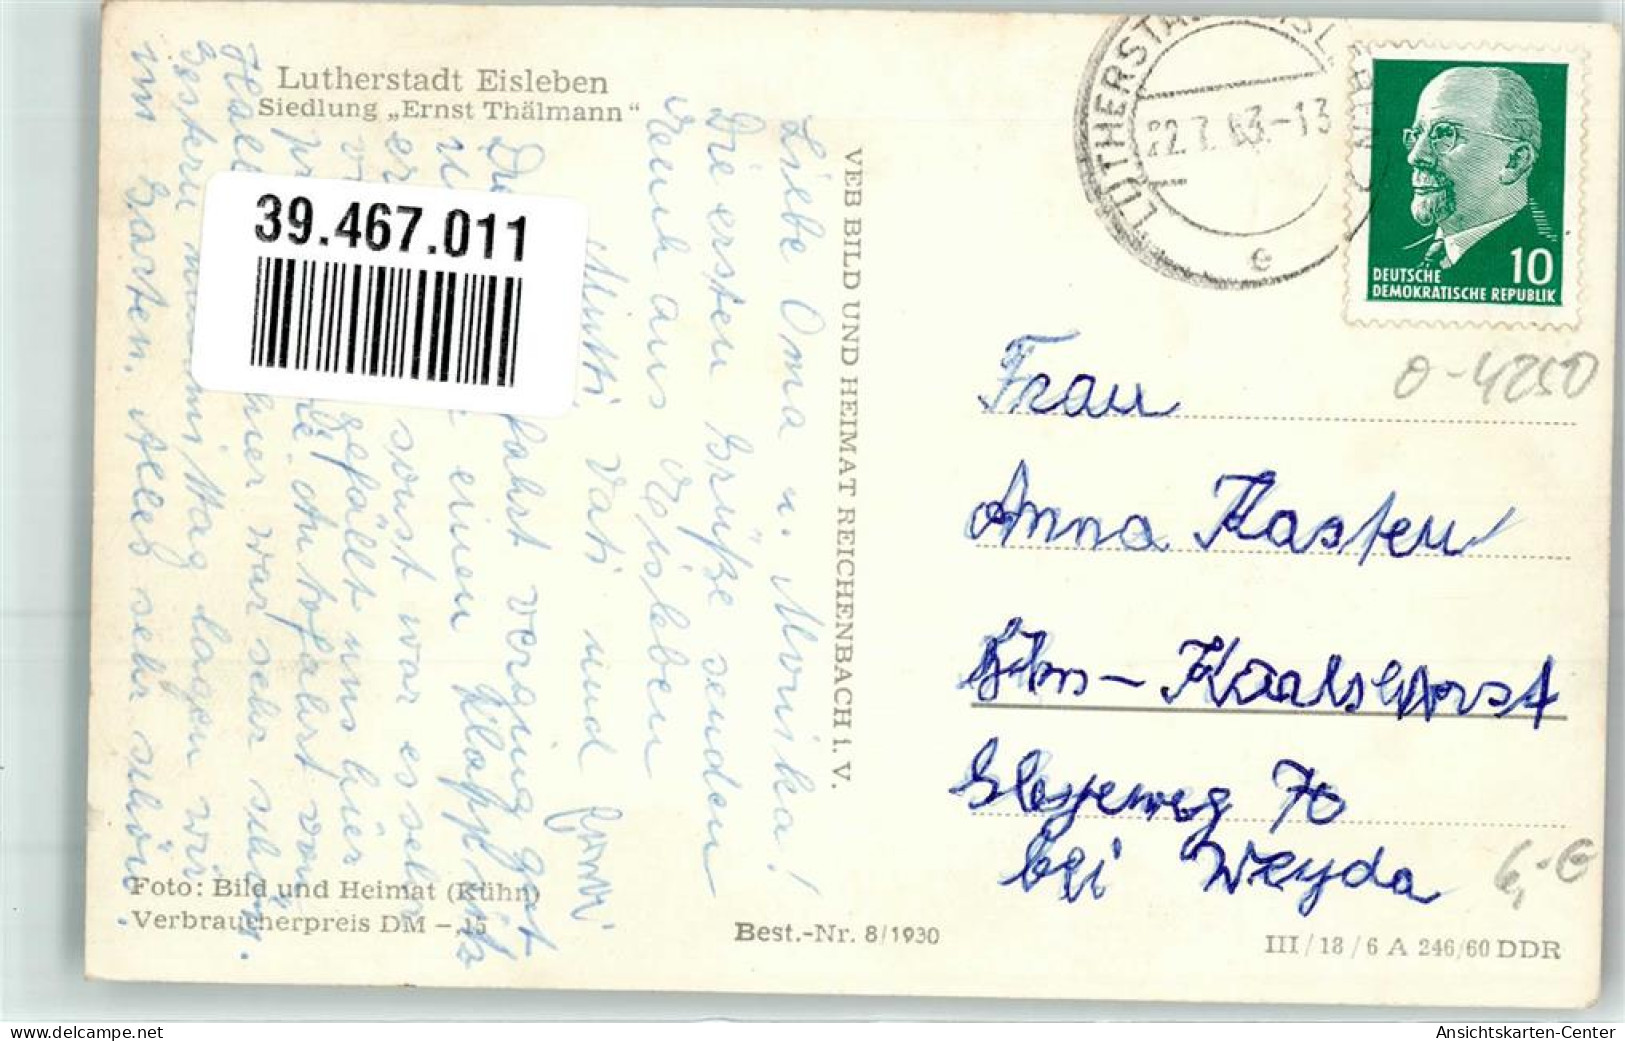 Lutherstadt Eisleben
Siedlung „Ernst Thälmann“
39.467.011
Liebe Oma u. Monika!
Die ersten Grüße senden
Euch aus Eisleben
Mutti, Vati und
fahrt verging gut
einen Klappsitz
sonst war es sehr
gefällt uns hier
Autofahrt von
Halle hier war sehr schön.
Gestern nachmittag lagen wir
im Garten. Alles sehr schön.
Foto: Bild und Heimat (Kühn)
Verbraucherpreis DM –,15
VEB BILD UND HEIMAT REICHENBACH i. V.
Best.-Nr. 8/1930
LUTHERSTADT EISLEBEN
22.7.63-13
e
10
DEUTSCHE
DEMOKRATISCHE REPUBLIK
O-4250
Frau
Anna Kasten
Bln – Karlshorst
70
bei Weyda
6,-E
III/18/6 A 246/60 DDR
www.delcampe.net
Ansichtskarten-Center